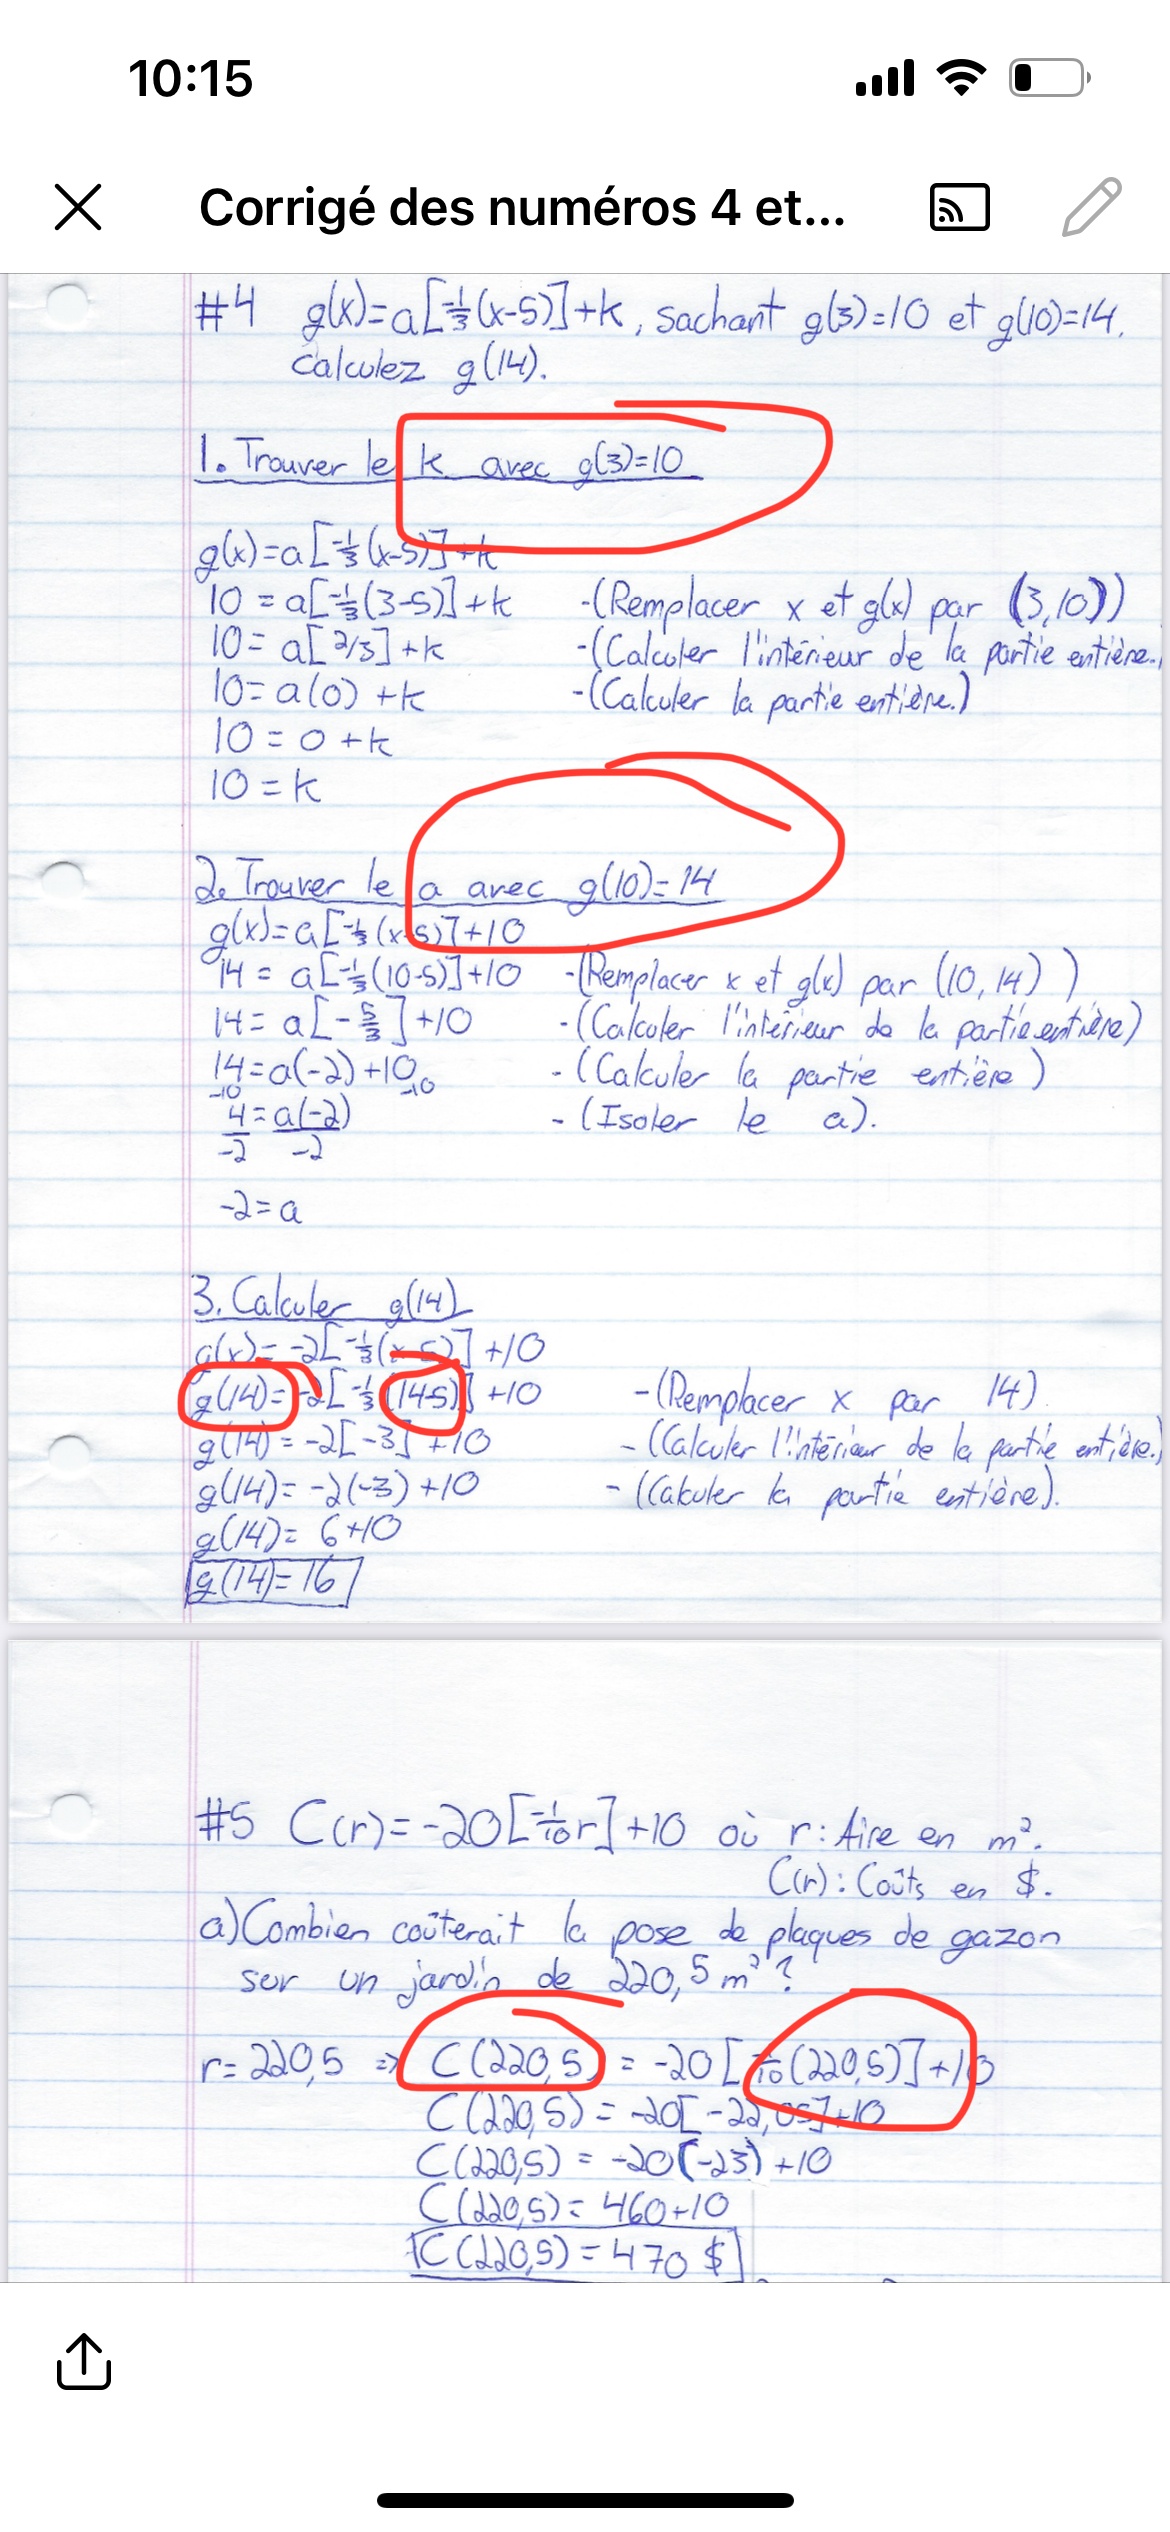 10:15
Corrigé des numéros 4 et...
#4 g(x)=a[-1/3(x-5)]+k, sachant g(3)=10 et g(10)=14.
Calculez g(14).
1. Trouver le k avec g(3)=10
g(x)=a[-1/3(x-5)]+k
10 = a[-1/3(3-5)]+k -(Remplacer x et g(x) par (3,10))
10= a[2/3]+k -(Calculer l'intérieur de la partie entière.)
10= a(0)+k -(Calculer la partie entière.)
10 = 0 +k
10 = k
2. Trouver le a avec g(10)=14
g(x)=a[-1/3(x-5)]+10
14 = a[-1/3(10-5)]+10 -(Remplacer x et g(x) par (10,14))
14= a[-5/3]+10 -(Calculer l'intérieur de la partie entière)
14=a(-2)+10 -(Calculer la partie entière)
-10 -10
4=a(-2) -(Isoler le a).
-2 -2
-2=a
3. Calculer g(14)
g(x)= -2[-1/3(x-5)]+10
g(14)= -2[-1/3(14-5)]+10 -(Remplacer x par 14)
g(14)= -2[-3]+10 -(Calculer l'intérieur de la partie entière.)
g(14)= -2(-3)+10 -(Calculer la partie entière).
g(14)= 6+10
g(14)=16
#5 C(r)=-20[-1/10r]+10 où r: Aire en m².
C(r): Coûts en $.
a)Combien coûterait la pose de plaques de gazon
sur un jardin de 220,5 m²?
r=220,5 => C(220,5) = -20[-1/10(220,5)]+10
C(220,5) = -20[-22,05]+10
C(220,5) = -20(-23)+10
C(220,5)= 460+10
C(220,5)=470 $